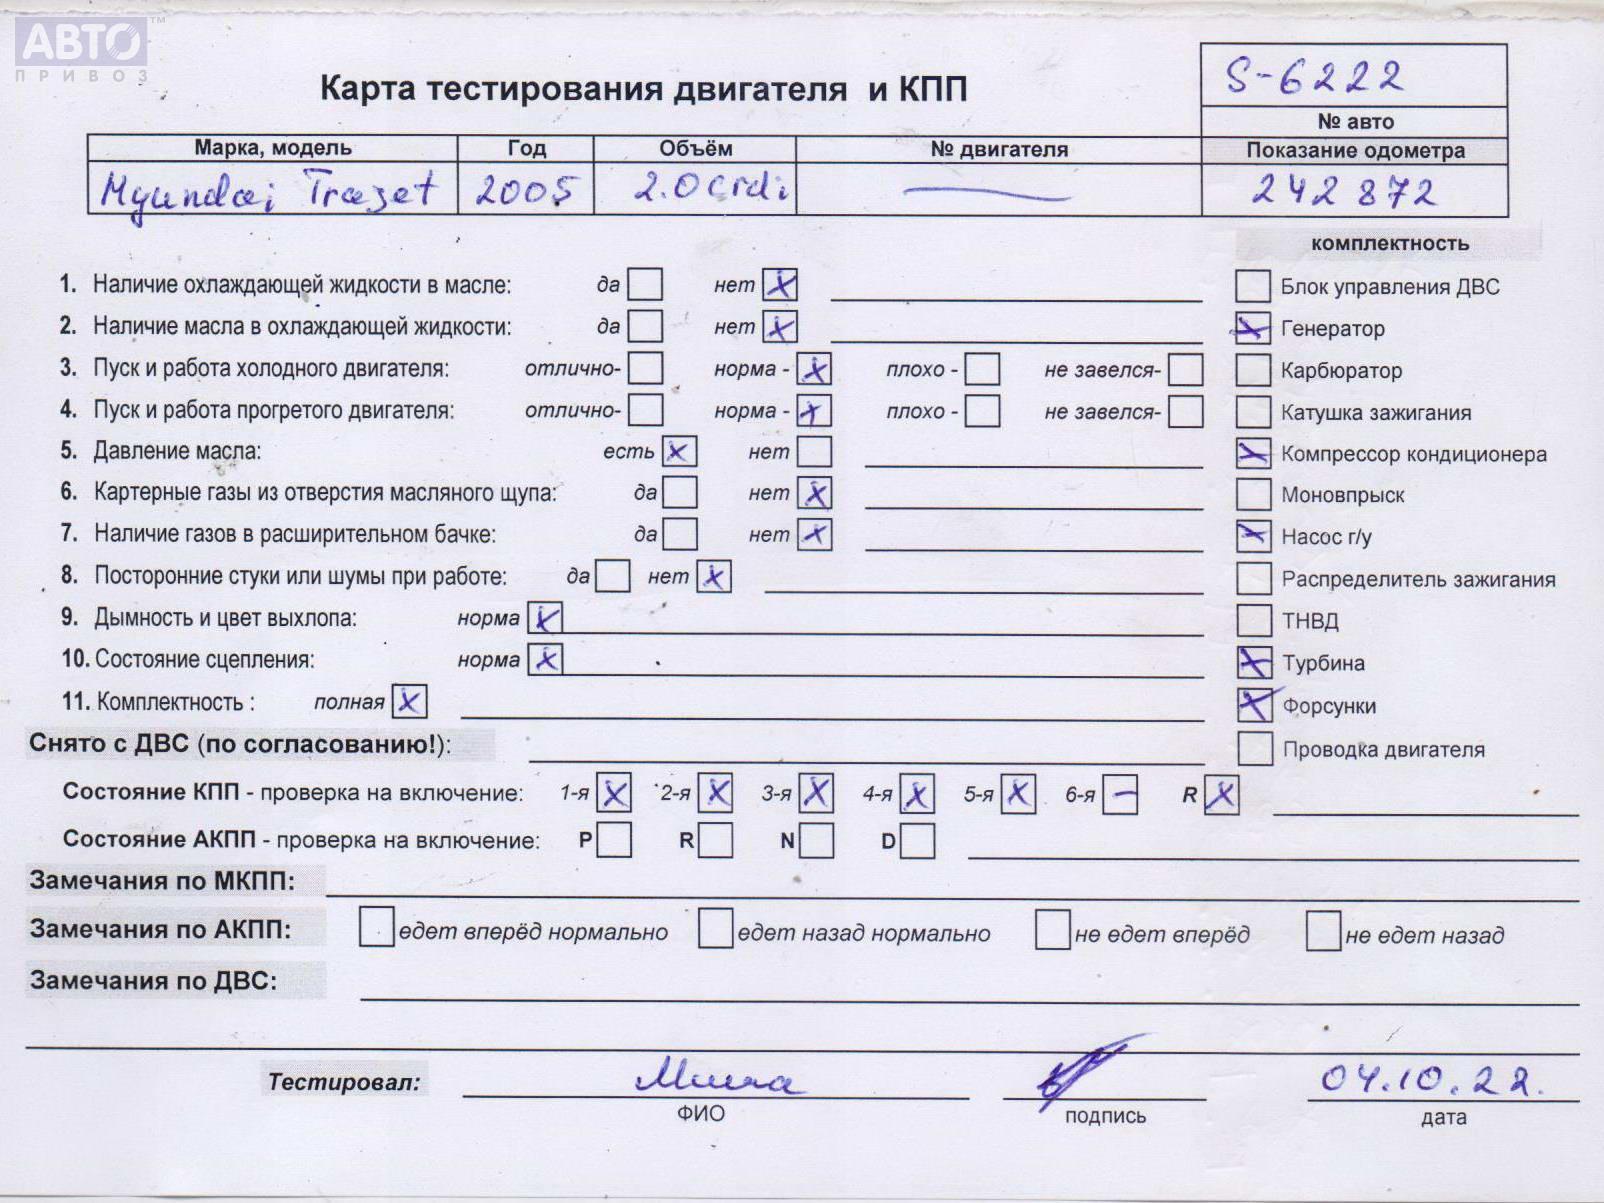 АВТО ™
ПРИВОЗ
Карта тестирования двигателя и КПП
S-6222
№ авто
Марка, модель Год Объём № двигателя Показание одометра
Hyundai Trajet 2005 2.0 crdi — 242872
комплектность
1. Наличие охлаждающей жидкости в масле: да нет X
Блок управления ДВС
2. Наличие масла в охлаждающей жидкости: да нет X
X Генератор
3. Пуск и работа холодного двигателя: отлично- норма - X плохо - не завелся-
Карбюратор
4. Пуск и работа прогретого двигателя: отлично- норма - X плохо - не завелся-
Катушка зажигания
5. Давление масла: есть X нет
X Компрессор кондиционера
6. Картерные газы из отверстия масляного щупа: да нет X
Моновпрыск
7. Наличие газов в расширительном бачке: да нет X
X Насос г/у
8. Посторонние стуки или шумы при работе: да нет X
Распределитель зажигания
9. Дымность и цвет выхлопа: норма X
ТНВД
10. Состояние сцепления: норма X
X Турбина
11. Комплектность : полная X
X Форсунки
Снято с ДВС (по согласованию!):
Проводка двигателя
Состояние КПП - проверка на включение: 1-я X 2-я X 3-я X 4-я X 5-я X 6-я — R X
Состояние АКПП - проверка на включение: P R N D
Замечания по МКПП:
Замечания по АКПП: едет вперёд нормально едет назад нормально не едет вперёд не едет назад
Замечания по ДВС:
Тестировал: Миша 04.10.22.
ФИО подпись дата